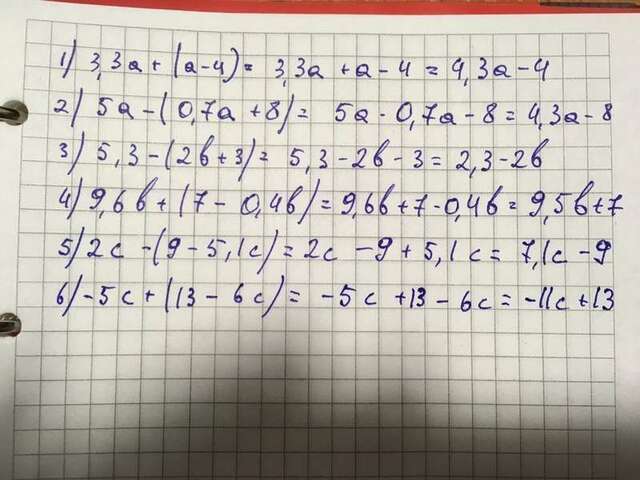 1) 3,3a + (a-4) = 3,3a + a - 4 = 4,3a - 4
2) 5a - (0,7a + 8) = 5a - 0,7a - 8 = 4,3a - 8
3) 5,3 - (2b + 3) = 5,3 - 2b - 3 = 2,3 - 2b
4) 9,6b + (7 - 0,4b) = 9,6b + 7 - 0,4b = 9,5b + 7
5) 2c - (9 - 5,1c) = 2c - 9 + 5,1c = 7,1c - 9
6) -5c + (13 - 6c) = -5c + 13 - 6c = -11c + 13